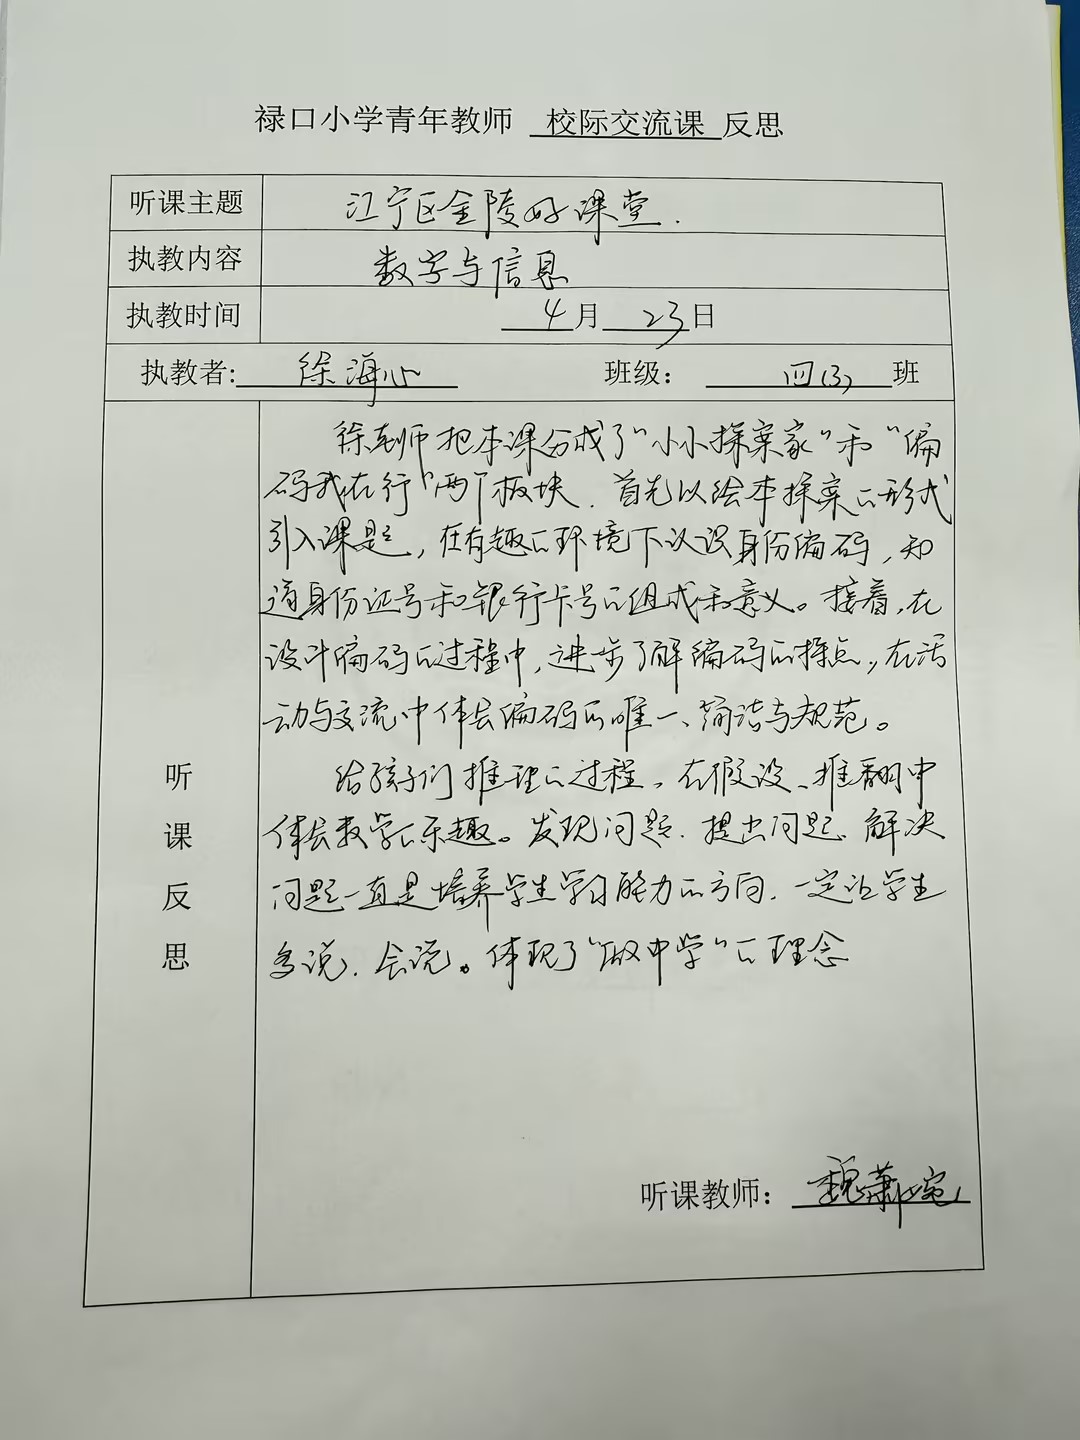 禄口小学青年教师 校际交流课 反思
听课主题 江宁区金陵好课堂.
执教内容 数字与信息
执教时间 4月23日
执教者: 徐海心 班级： 四(3)班
徐老师把本课分成了“小小探案家”和“编
码我在行”两个板块.首先以绘本探案的形式
引入课题，在有趣的环境下认识身份编码，知
道身份证号和银行卡号的组成和意义。接着，在
设计编码的过程中，进步了解编码的特点，在活
动与交流中体会编码的唯一、简洁与规范。
给孩子们推理的过程，在假设、推翻中
体会数学的乐趣。发现问题.提出问题.解决
问题一直是培养学生学习能力的方向.一定让学生
多说.会说。体现了“做中学”的理念
听课反思
听课教师：魏萧婉